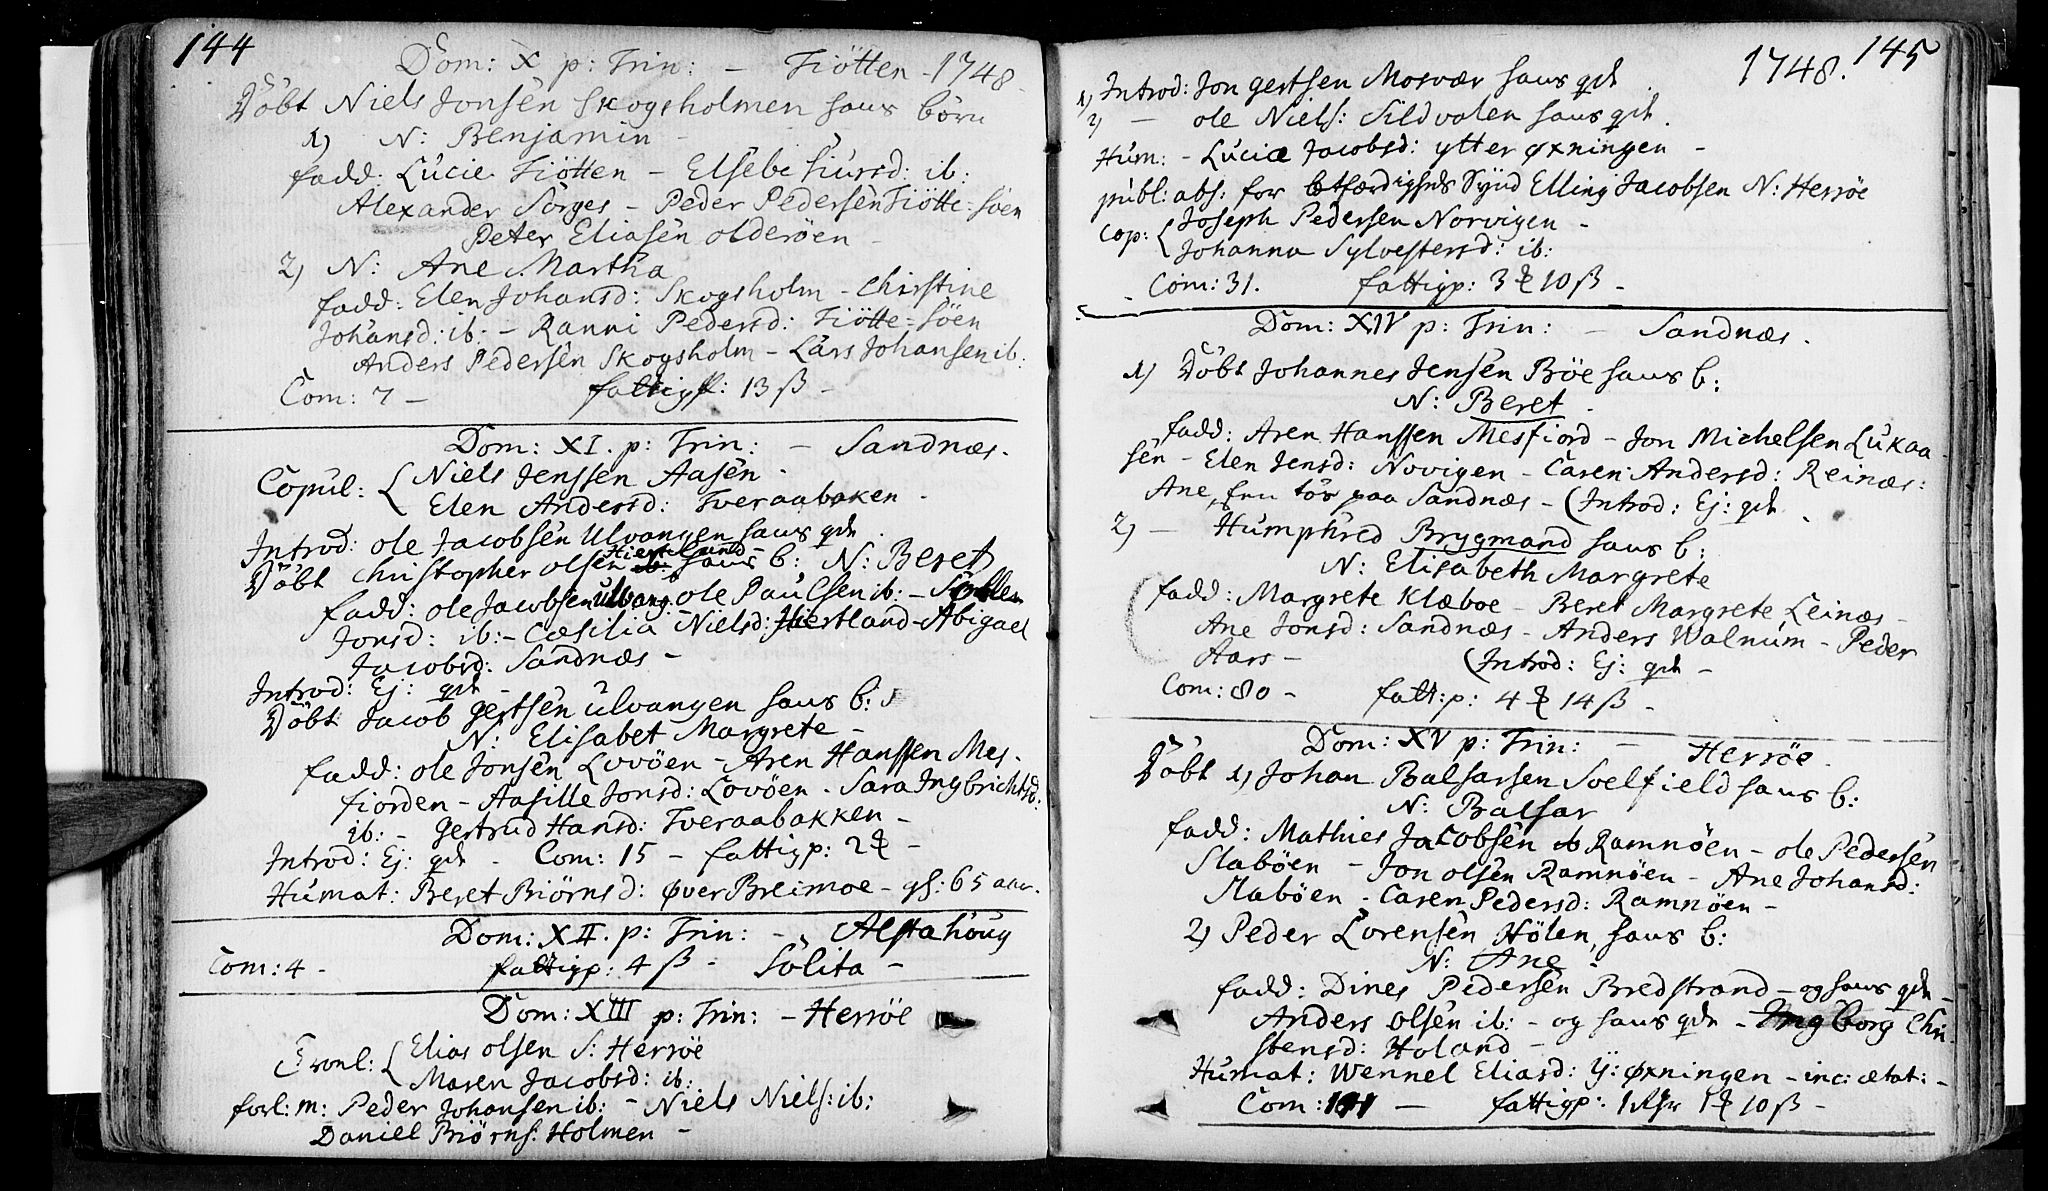 144
Dom: X p: Trin: — Tiötten - 1748
Döbt Niels Jonsen Skogsholmen hans börn
1) N: Benjamin -
fadd: Lucie Tiötten - Elsebe ib:
Alexander Sörges - Peder Pedersen Tiötte-söen
Peter Eliasen Olderöen -
2) N: Ane Martha
fadd: Elen Johansd: Skogsholm - Christine
Johansd: ib: - Ranni Pedersd: Tiötte-söen
Anders Pedersen Skogsholm - Lars Johansen ib:
Com: 7 - fattigp: 13 ß -
Dom: XI. p: Trin: - Sandnæs.
Copul: { Niels Jenssen Aasen -
Elen Andersd: Tveraabaken -
Introd: ole Jacobsen Ulvangen hans qde
Döbt Christopher olsen Hiertland hans b: N: Beret
fadd: ole Jacobsen Ulvang: ole Paulsen ib: -
Jonsd: ib: - Cæsilia Nielsd: Hiertland - Abigael
Jacobsd: Sandnæs -
Introd: Ej: qde -
Döbt Jacob Gertsen Ulvangen hans b:
N: Elisabet Margrete -
fadd: ole Jonsen Lovöen - Aren Hanssen Mes-
fiorden - Aasille Jonsd: Lovöen - Sara Ingbrichtsd:
ib: - Gertrud Hansd: Tveraabakken -
Introd: Ej: qde - Com: 15 - fattigp: 2 ₰ -
Humat: Beret Biörnsd: øver Breimoe - gl: 65 aar.
Dom: XII. p: Trin: - Alstahoug
Com: 4 - fattigp: 4 ß - Solita -
Dom: XIII p: Trin: - Herröe
Trol: { Elias olsen S: Herröe
Maren Jacobsd: ib:
forl: m: Peder Johansen ib: - Niels Niels: ib:
Daniel Biörns: Holmen -
1748. 145
1) Introd: Jon Gertsen Mosvær hans qde
2) - ole Niels: Sildvalen hans qde.
Hum: - Luciæ Jacobsd: ytter øxningen -
publ: abs: for Synd Elling Jacobsen N: Herröe
Cop: { Joseph Pedersen Norvigen -
Johanna Sylvestersd: ib:
Com: 31. fattigp: 3 ₰ 10 ß -
Dom: XIV p: Trin: - Sandnæs.
1) Döbt Johannes Jensen Böe hans b:
N: Beret -
fadd: Aren Hanssen Mesfiord - Jon Michelsen Lukaa-
sen - Elen Jensd: Novigen - Caren Andersd: Reinæs:
Ane, paa Sandnæs - (Introd: Ej: qde
2) - Humphred Brygmand hans b:
N: Elisabeth Margrete
fadd: Margrete Klæboe - Beret Margrete Leinæs -
Ane Jonsd: Sandnæs - Anders Walnum - Peder
Aars - (Introd: Ej: qde -
Com: 80 - fatt: p: 4 ₰ 14 ß -
Dom: XV p: Trin: - Herröe -
Döbt 1) Johan Balsarsen Soelfield hans b:
N: Balsar
fadd: Mathies Jacobsen Ramnöen - ole Pedersen
Slaböen - Jon olsen Ramnöen - Ane Johansd:
Slaböen - Caren Pedersd: Ramnöen -
2) Peder Lorensen Hölen, hans b:
N: Ane -
fadd: Dines Pedersen Bredstrand - og hans qde -
Anders olsen ib: - og hans qde - Ingborg Chri-
stensd: Holand -
Humat: Wennel Eliasd: Y: øxningen - inc: ætat: -
Com: - fattigp: 1 1 ₰ 10 ß -